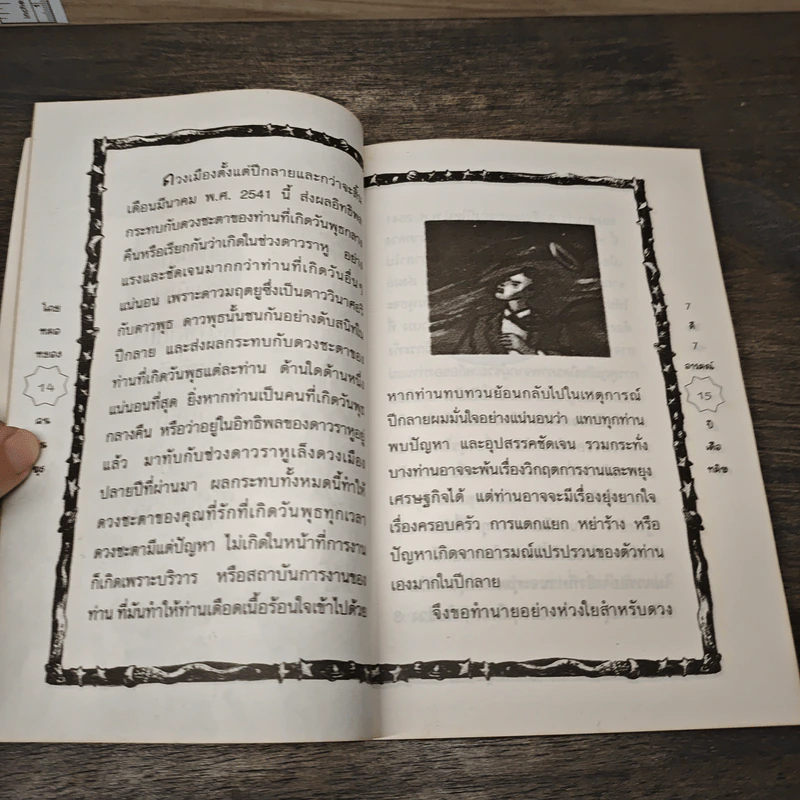 ดวงเมืองตั้งแต่ปีกลายและกว่าจะสิ้น
เดือนมีนาคม พ.ศ. 2541 นี้ ส่งผลอิทธิพล
กระทบกับดวงชะตาของท่านที่เกิดวันพุธกลาง
คืนหรือเรียกกันว่าเกิดในช่วงดาวราหู อย่าง
แรงและชัดเจนมากกว่าท่านที่เกิดวันอื่นๆ
แน่นอน เพราะดาวมฤตยูซึ่งเป็นดาววินาศ
กับดาวพุธ ดาวพุธนั้นชนกันอย่างดับสนิทใน
ปีกลาย และส่งผลกระทบกับดวงชะตาของ
ท่านที่เกิดวันพุธแต่ละท่าน ด้านใดด้านหนึ่ง
แน่นอนที่สุด ยิ่งหากท่านเป็นคนที่เกิดวันพุธ
กลางคืน หรือว่าอยู่ในอิทธิพลของดาวราหูอยู่
แล้ว มาทับกับช่วงดาวราหูเล็งดวงเมือง
ปลายปีที่ผ่านมา ผลกระทบทั้งหมดนี้ทำให้
ดวงชะตาของคุณที่รักที่เกิดวันพุธทุกเวลา
ดวงชะตามีแต่ปัญหา ไม่เกิดในหน้าที่การงาน
ก็เกิดเพราะบริวาร หรือสถาบันการงานของ
ท่าน ที่มันทำให้ท่านเดือดเนื้อร้อนใจเข้าไปด้วย
โดย
หมอ
หยอง
14
หากท่านทบทวนย้อนกลับไปในเหตุการณ์
ปีกลายผมมั่นใจอย่างแน่นอนว่า แทบทุกท่าน
พบปัญหา และอุปสรรคชัดเจน รวมกระทั่ง
บางท่านอาจจะพ้นเรื่องวิกฤตการงานและพยุง
เศรษฐกิจได้ แต่ท่านอาจจะมีเรื่องยุ่งยากใจ
เรื่องครอบครัว การแตกแยก หย่าร้าง หรือ
ปัญหาเกิดจากอารมณ์แปรปรวนของตัวท่าน
เองมากในปีกลาย
จึงขอทำนายอย่างห่วงใยสำหรับดวง
7
ดี
7
อารมณ์
15
ปี
เสือ